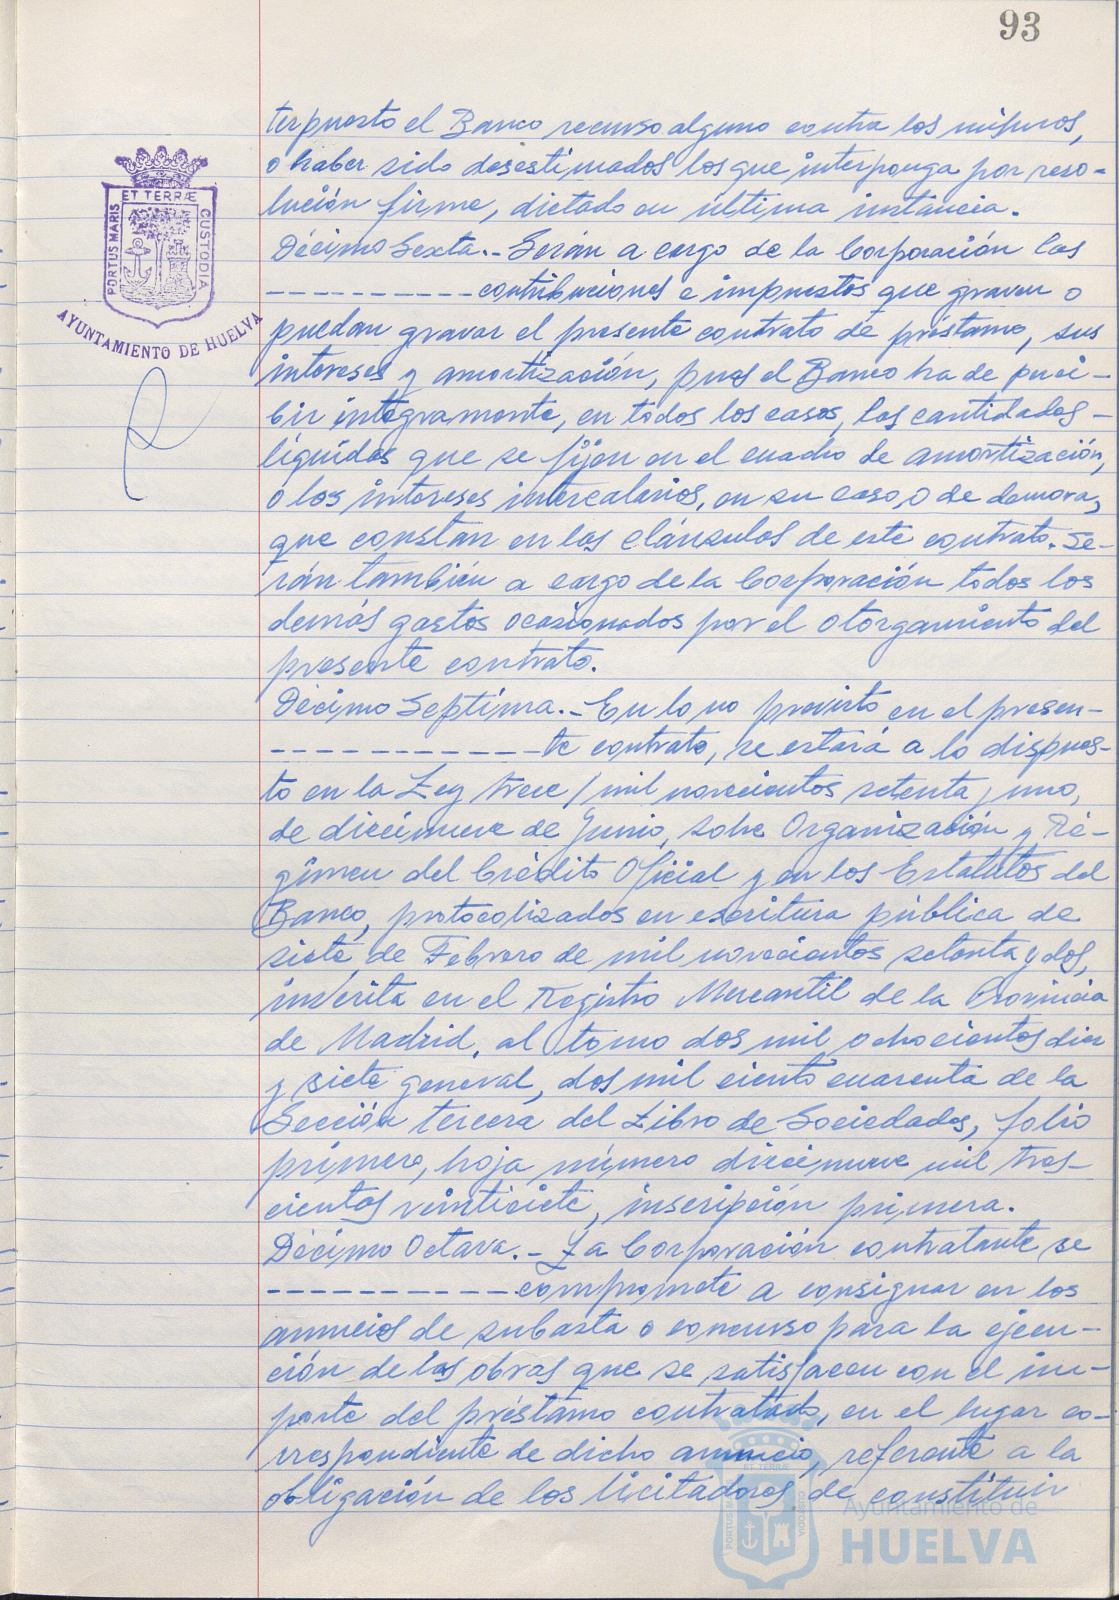 93
terpuesto el Banco recurso alguno contra los mismos,
o haber sido desestimados los que interponga por reso-
lución firme, dictado en última instancia.
Décimo Sexta.- Serán a cargo de la Corporación las
---------- contribuciones e impuestos que graven o
puedan gravar el presente contrato de préstamo, sus
intereses y amortización, pues el Banco ha de perci-
bir integramente, en todos los casos, las cantidades-
líquidas que se fijen en el cuadro de amortización,
o los intereses intercalarios, en su caso, o de demora,
que constan en las cláusulas de este contrato. Se-
rán también a cargo de la Corporación todos los
demás gastos ocasionados por el otorgamiento del
presente contrato.
Décimo Septima.- En lo no previsto en el presen-
------------ te contrato, se estará a lo dispues-
to en la Ley trece/mil novecientos setenta y uno,
de diecinueve de Junio, sobre Organización y Ré-
gimen del Crédito Oficial y en los Estatutos del
Banco, protocolizados en escritura pública de
siete de Febrero de mil novecientos setenta y dos,
inscrita en el Registro Mercantil de la Provincia
de Madrid, al tomo dos mil ochocientos diez
y siete general, dos mil ciento cuarenta de la
Sección tercera del Libro de Sociedades, folio
primero, hoja número diecinueve mil tres-
cientos veintisiete, inscripción primera.
Décimo Octava.- La Corporación contratante se
----------- compromete a consignar en los
anuncios de subasta o concurso para la ejecu-
ción de las obras que se satisfacen con el im-
porte del préstamo contratado, en el lugar co-
rrespondiente de dicho anuncio, referente a la
obligación de los licitadores de constituir
PORTUS MARIS
ET TERRÆ
CUSTODIA
AYUNTAMIENTO DE HUELVA
Ayuntamiento de
HUELVA